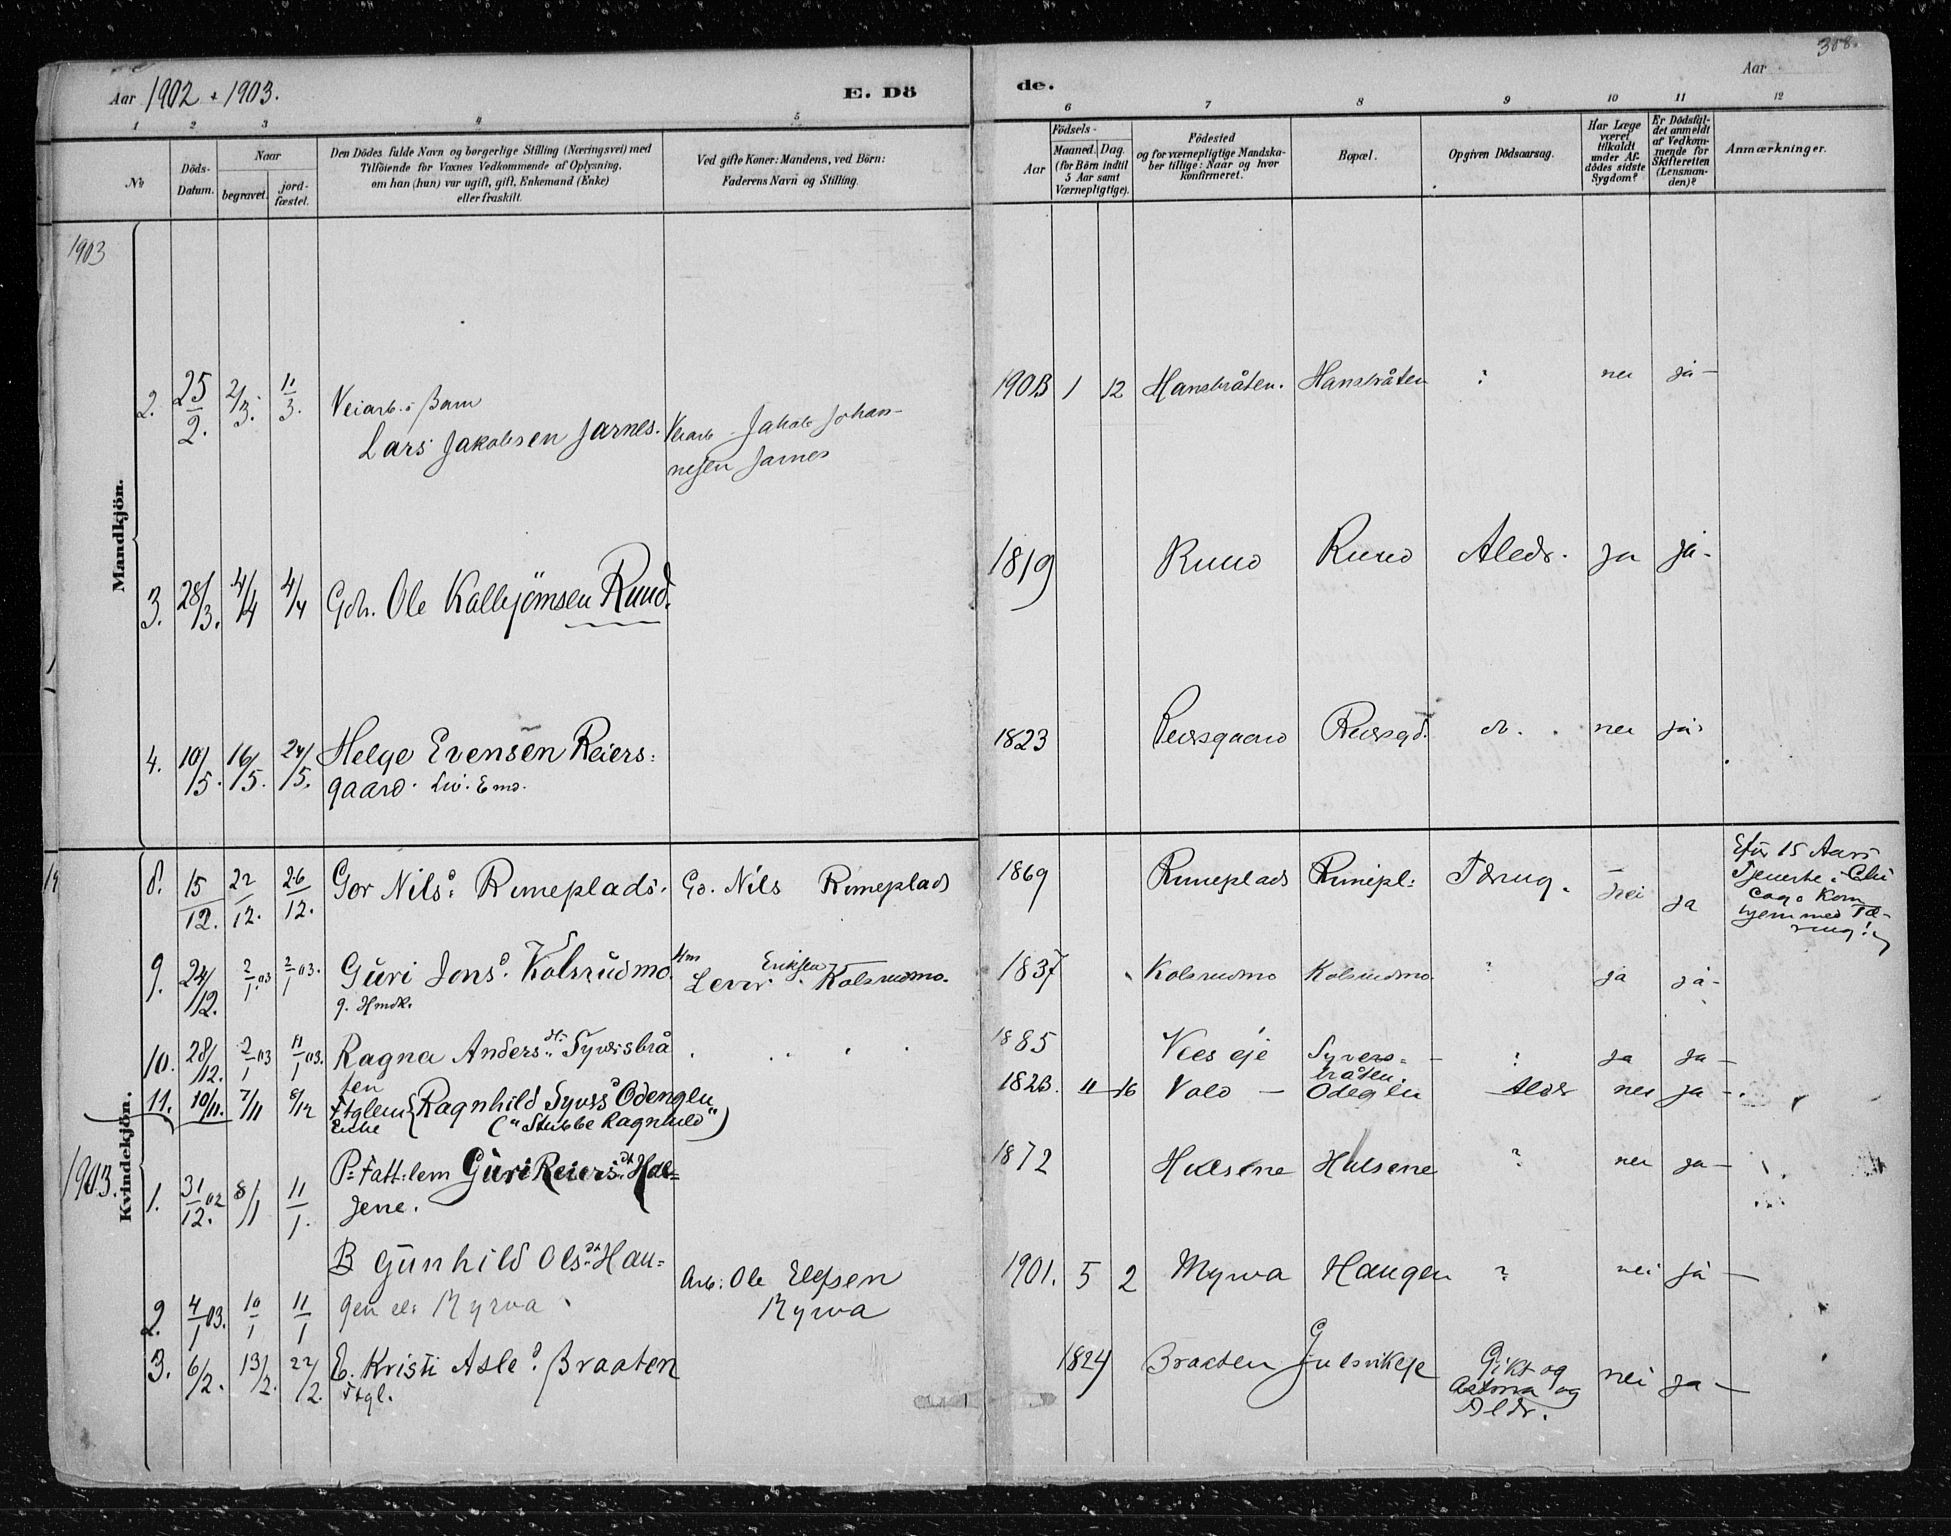 308.
Aar 1902 + 1903. E. Dö de. Aar
1 2 3 4 5 6 7 8 9 10 11 12
No
Döds-
Datum.
Naar
begravet.
jord-
fæstet.
Den Dödes fulde Navn og borgerlige Stilling (Næringsvei) med
Tilföiende for Voxnes Vedkommende af Oplysning,
om han (hun) var ugift, gift, Enkemand (Enke)
eller fraskilt.
Ved gifte Koner: Mandens, ved Börn:
Faderens Navn og Stilling.
Födsels-
Aar
Maaned. Dag.
(for Börn indtil
5 Aar samt
Værnepligtige).
Födested
og for værnepligtige Mandska-
ber tillige: Naar og hvor
konfirmeret.
Bopæl.
Opgiven Dödsaarsag.
Har Læge
været
tilkaldt
under Af-
dödes sidste
Sygdom?
Er Dödsfal-
det anmeldt
af Vedkom-
mende for
Skifteretten
(Lensman-
den)?
Anmærkninger.
1903
Mandkjön.
2. 25/2. 2/3. 11/3. Veiarb.s Barn
Lars Jakobsen Jarnes. Veiarb. Jakob Johan-
nesen Jarnes
1903 1 12 Hansbråten. Hansbråten ? nei ja —
3. 28/3. 4/4 4/4 Gdb. Ole Kolbjörnsen Ruud. 1819 Ruud Ruud Aldr. ja ja -
4. 10/5. 16/5. 24/5. Helge Evensen Reiers:
gaard. Em.
1823 Reiersgaard Reiersgd. do. nei ja
Kvindekjön.
8. 15/12. 22/12. 26/12. Gor Nilsd. Rimeplads. Gd. Nils Rimeplads 1869 Rimeplads Rimepl: Tæring. nei ja
Efter 15 Aars
Tjeneste i Chi
cago kom
hjem med Tæ-
ring!
9. 24/12. 2/1.03 2/1 03. Guri Jonsd. Kolsrudmo
g. Hmdk.
Hm
Eriksen
Kolsrudmo.
1837 Kolsrudmo Kolsrudmo ? ja ja -
10. 28/12. 2/1 03 11/1 03. Ragna Andersdt. Syversbrå
ten
1885 Vees eje Syvers=
bråten. ? ja ja —
11. 10/11. 7/11 8/12 Ftglem Enke { Ragnhild Syversd Ödenglu
("Stubbe Ragnhild")
1823. 11 16 Vold — Aldr nei ja -
1903.
1. 31/12. 02 8/1 11/1. P: Fatt: lem Guri Reiersdt. Hal=
sene.
1872 Halsene Halsene ? nei ja —
2. 4/1 03. 10/1 11/1 B Gunhild Olsdt. Hau=
gen el: Myrva
Arb: Ole Elefsen
Myrva
1901. 5 2 Myrva Haugen ? nei ja —
3. 6/2. 13/2. 22/2. E. Kristi Asled. Braaten
Ftgl.
1824 Braaten Gulsvikeje Gikt og
Astma og
Aldr. nei ja —